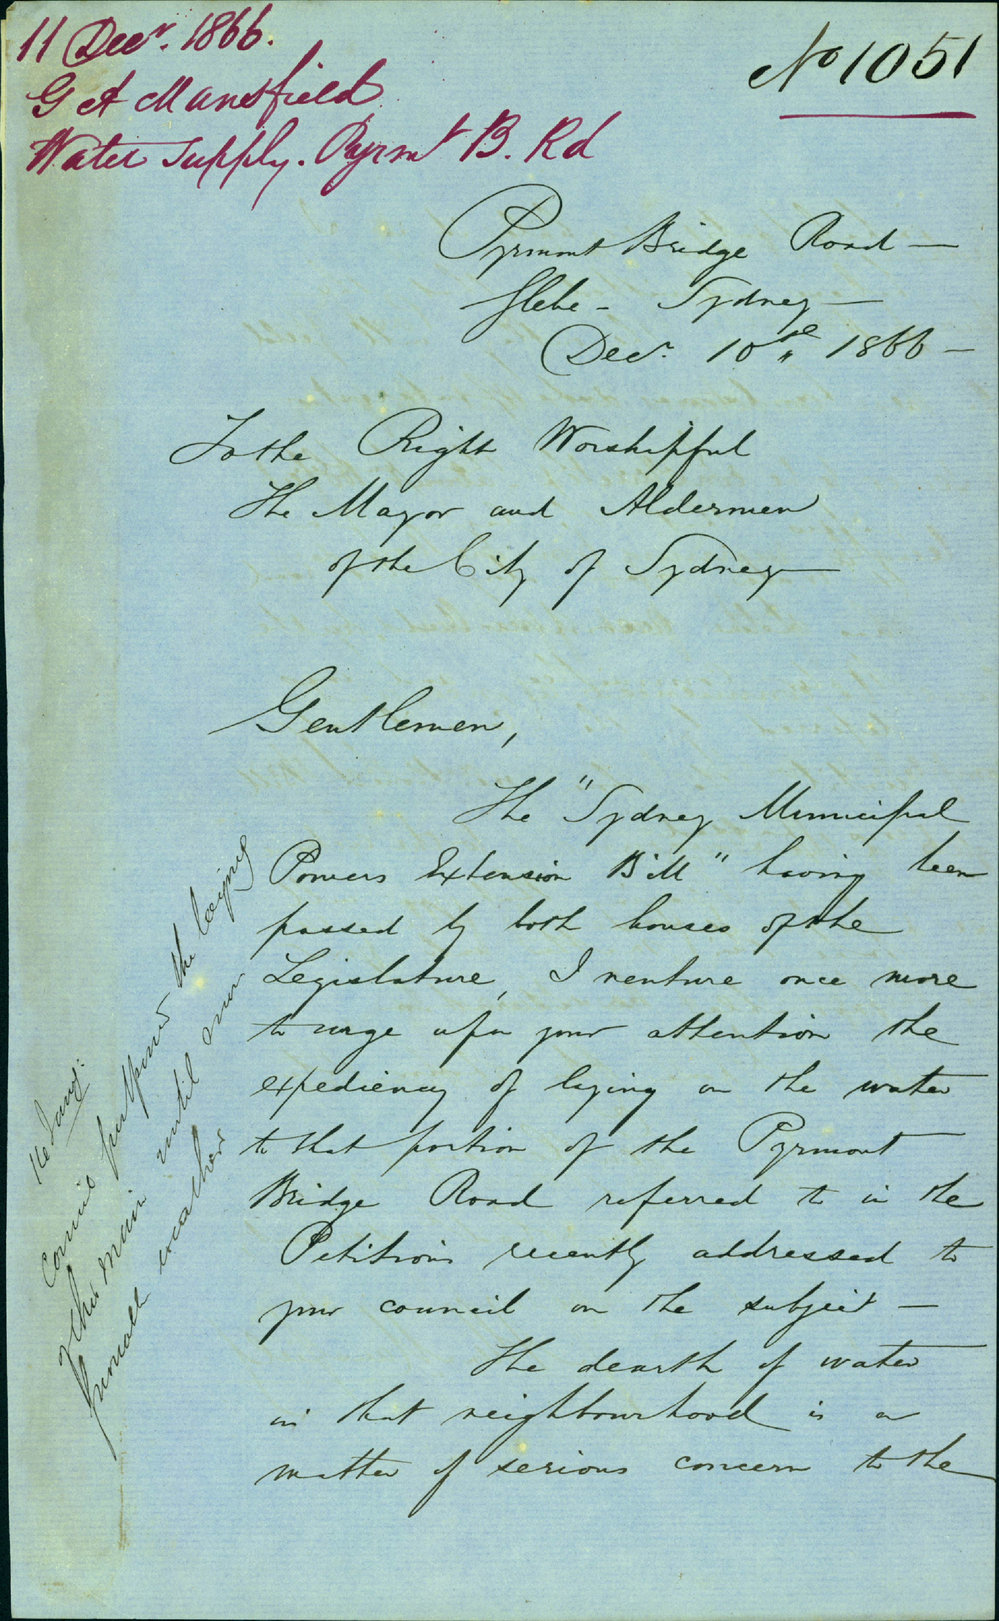 11 Decr. 1866.
G A Mansfield
Water Supply. Pyrmt B. Rd
No 1051
Pyrmont Bridge Road —
Glebe - Sydney —
Decr. 10th 1866 —
To the Right Worshipful
The Mayor and Aldermen
of the City of Sydney —
Gentlemen,
The "Sydney Municipal
Powers Extension Bill" having been
passed by both houses of the
Legislature, I venture once more
to urge upon your attention the
expediency of laying on the water
to that portion of the Pyrmont
Bridge Road referred to in the
Petitions recently addressed to
your council on the subject —
The dearth of water
in that neighbourhood is a
matter of serious concern to the
postponed the laying
main until
weather